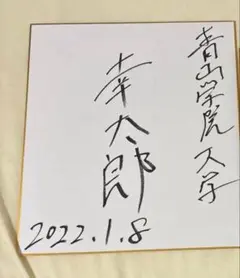 青山学院大学
幸太郎
2022.1.8